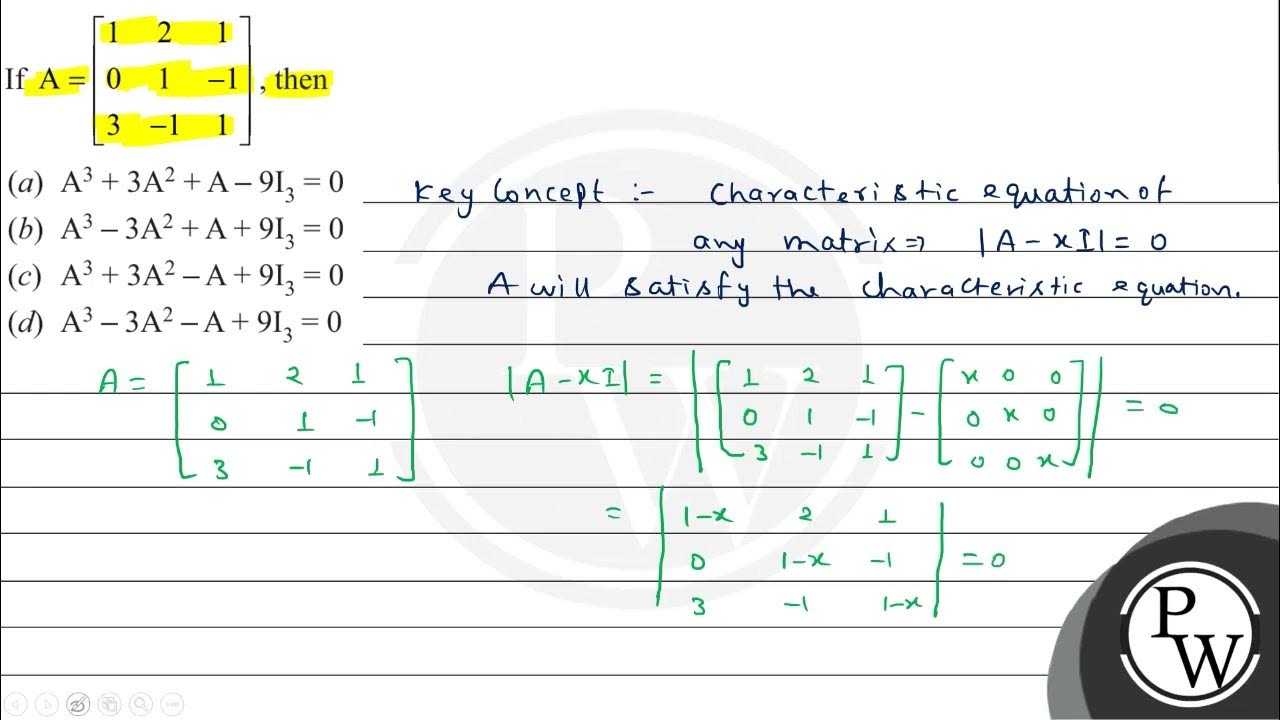 If A = [1 2 1
0 1 –1
3 –1 1] , then
(a) A³ + 3A² + A – 9I₃ = 0
(b) A³ – 3A² + A + 9I₃ = 0
(c) A³ + 3A² – A + 9I₃ = 0
(d) A³ – 3A² – A + 9I₃ = 0
Key Concept :- Characteristic equation of
any matrix ⇒ |A - xI| = 0
A will satisfy the characteristic equation.
A = [1 2 1
0 1 -1
3 -1 1]
|A - xI| = |[1 2 1
0 1 -1
3 -1 1] - [x 0 0
0 x 0
0 0 x]| = 0
= |1-x 2 1
0 1-x -1
3 -1 1-x| = 0
P
W
P
W